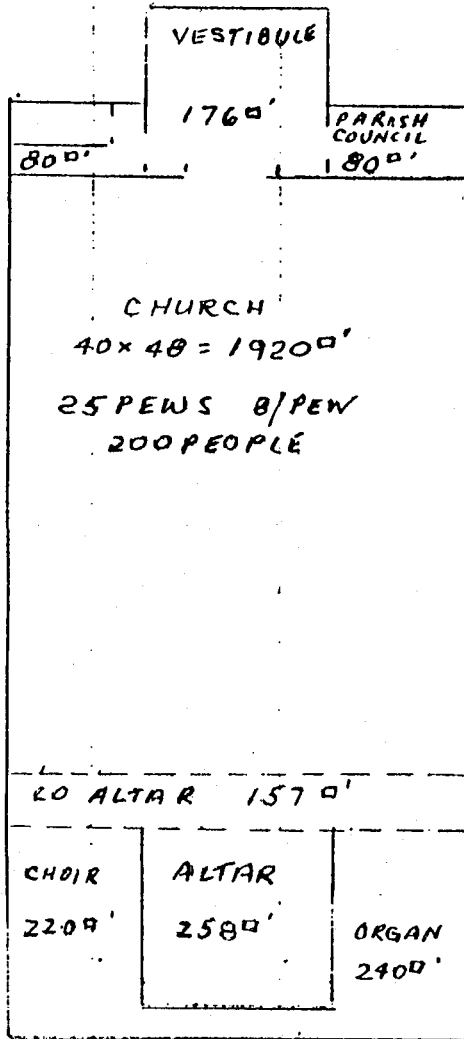 VESTIBULE
176□'
80□'
PARISH
COUNCIL
80□'
CHURCH
40 x 48 = 1920□'
25 PEWS 8/PEW
200 PEOPLE
ALTAR 157□'
CHOIR
220□'
ALTAR
258□'
ORGAN
240□'